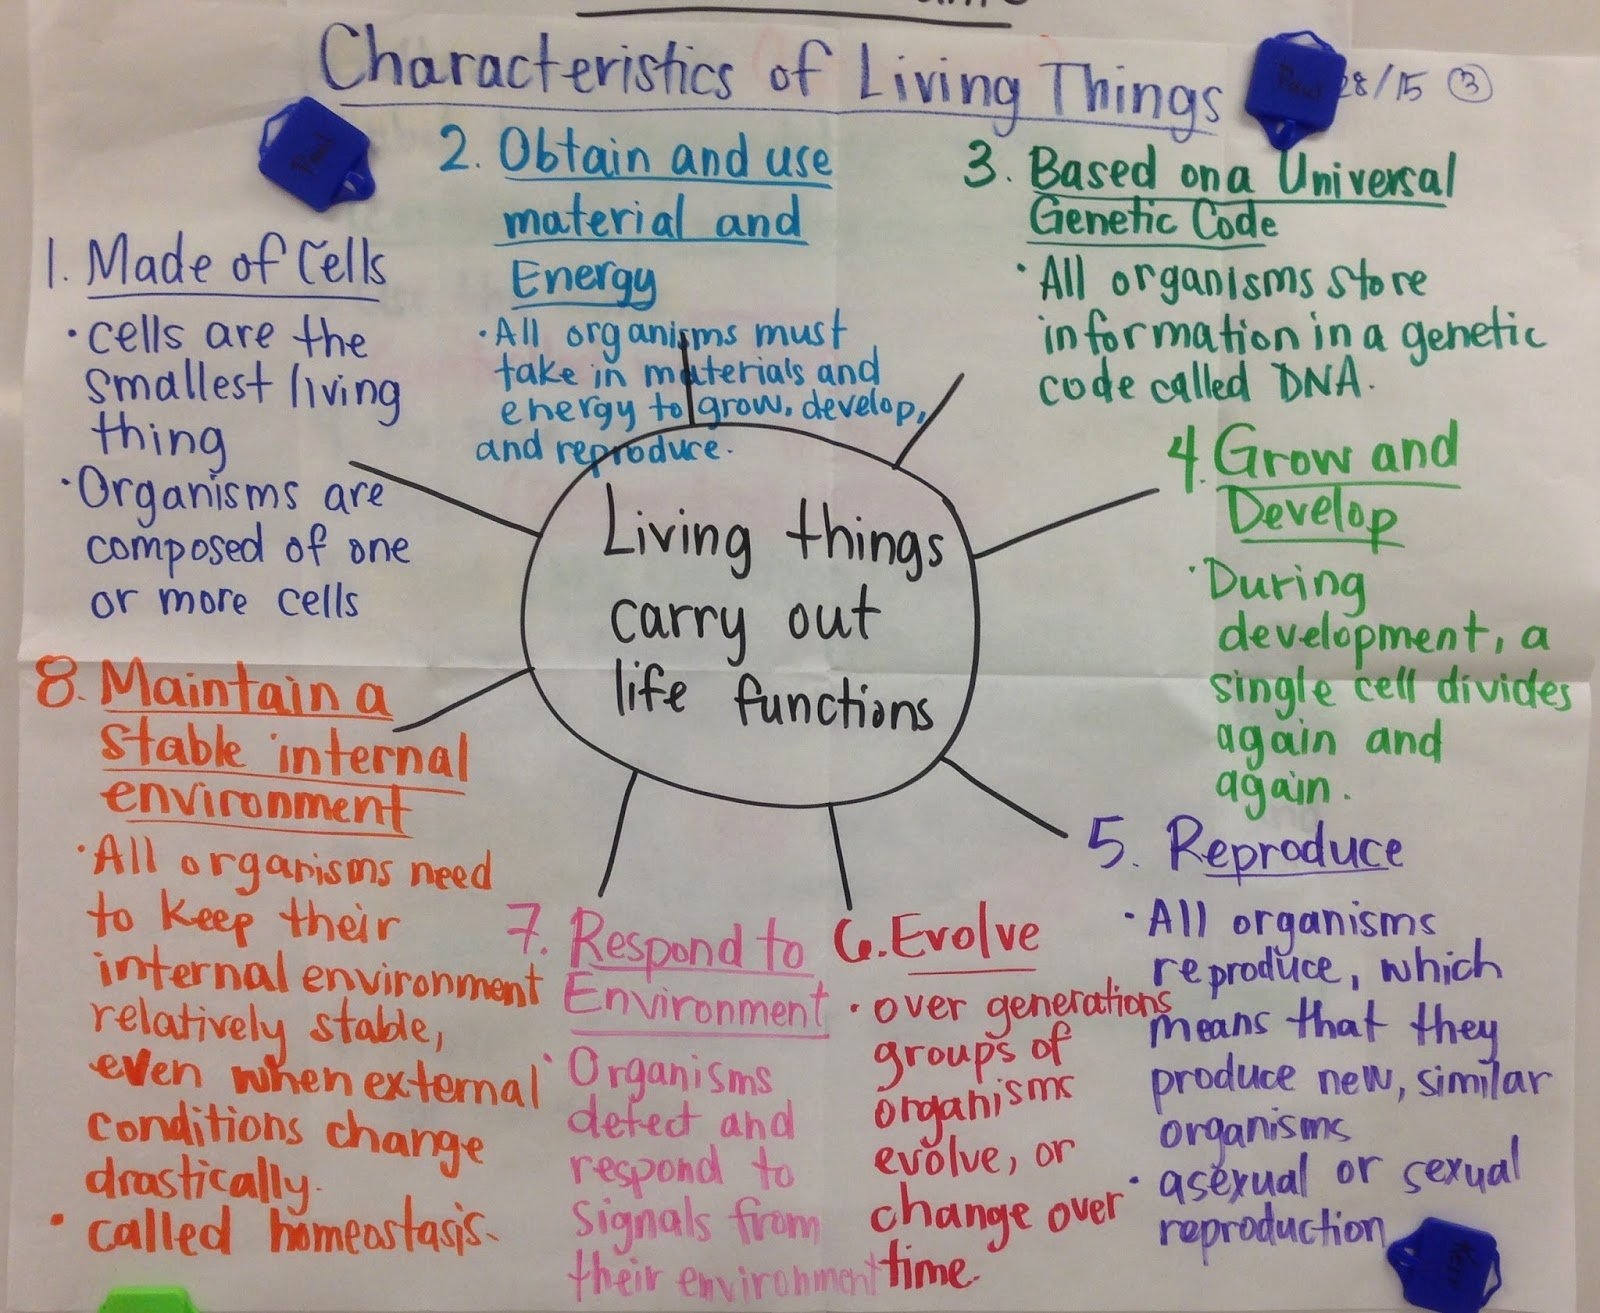 Characteristics of Living Things
28/15 3
1. Made of Cells
· cells are the
smallest living
thing
· Organisms are
composed of one
or more cells
2. Obtain and use
material and
Energy
· All organisms must
take in materials and
energy to grow, develop,
and reproduce.
3. Based on a Universal
Genetic Code
· All organisms store
information in a genetic
code called DNA.
4. Grow and
Develop
· During
development, a
single cell divides
again and
again.
5. Reproduce
· All organisms
reproduce, which
means that they
produce new, similar
organisms
· asexual or sexual
reproduction
6. Evolve
· over generations
groups of
organisms
evolve, or
change over
time.
7. Respond to
Environment
· Organisms
detect and
respond to
signals from
their environment
8. Maintain a
stable internal
environment
· All organisms need
to keep their
internal environment
relatively stable,
even when external
conditions change
drastically.
· called homeostasis.
Living things
carry out
life functions
Paul
Paul